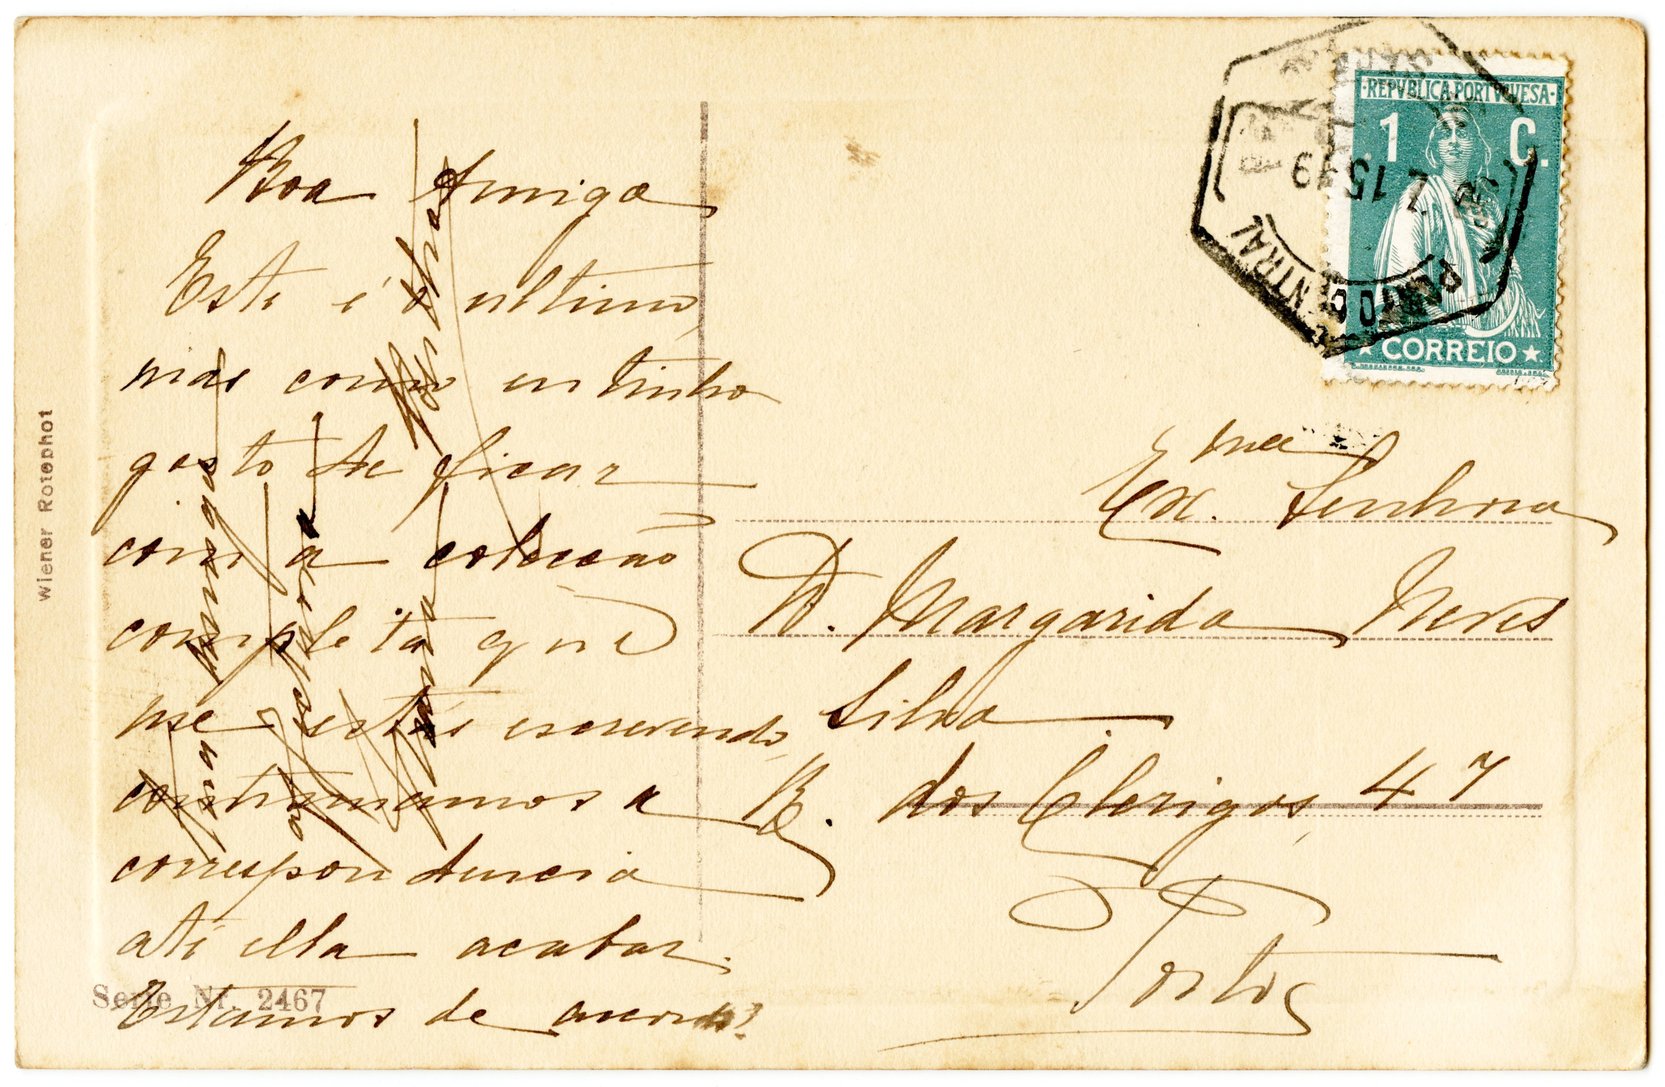 Boa Amiga
Este é o ultimo,
mas como eu tinha
gosto de ficar
com a colecção
completa que
me estás escrevendo,
continuamos a
correspondencia
até ella acabar.
Estamos de acordo?
Wiener Rotophot
Serie Nr. 2467
REPVBLICA PORTVGVESA
1 C.
CORREIO
PORTO CENTRAL
Ex.ma Senhora
D. Margarida Neves
Silva
R. dos Clerigos, 47
Porto